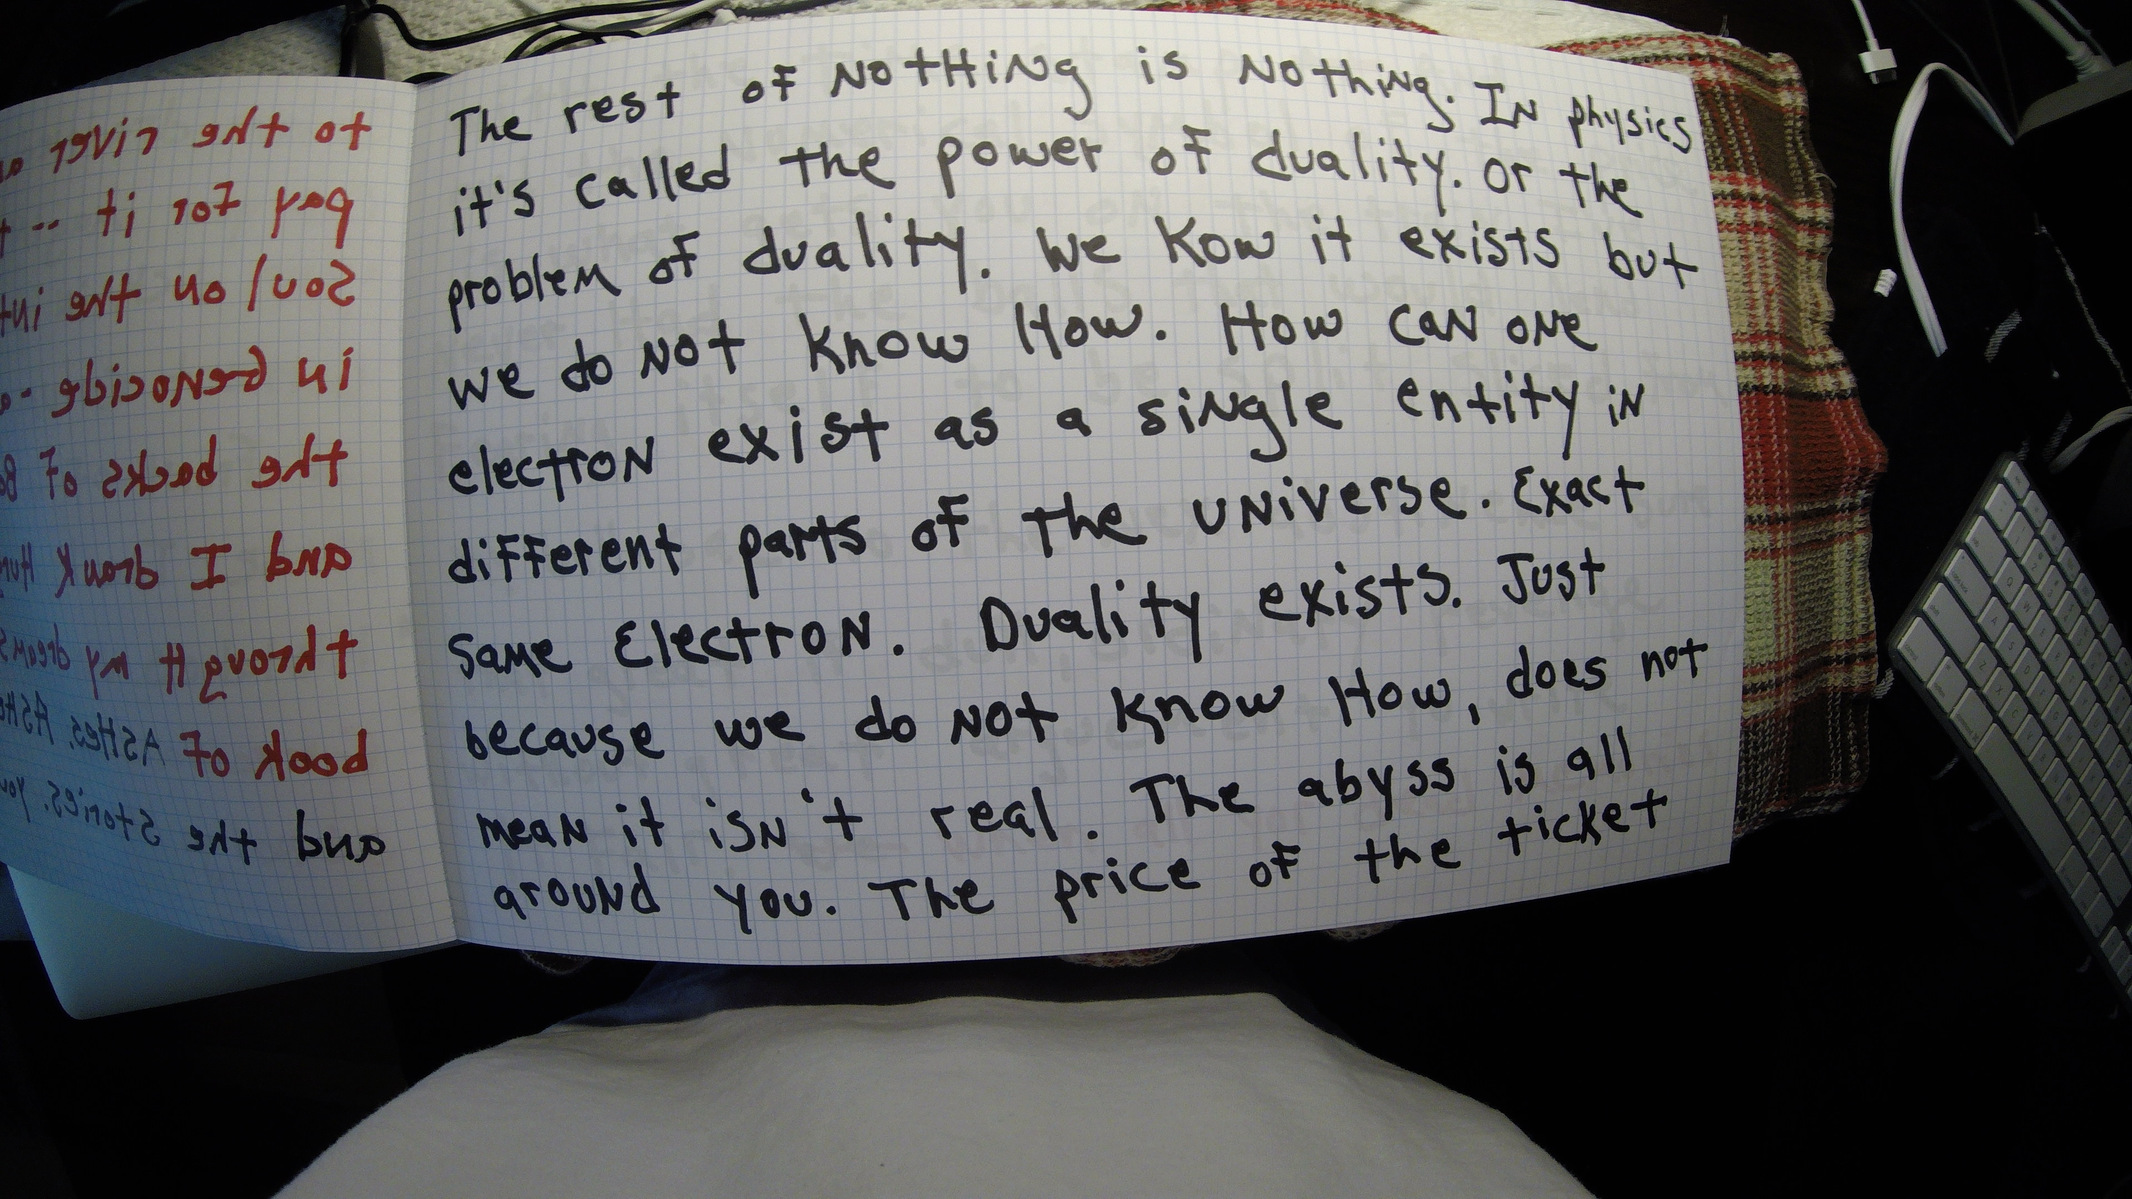 The rest of NotHiNg is Nothing. IN physics
it's called the power of duality. Or the
problem of duality. We Kow it exists but
we do Not know How. How can one
electroN exist as a single entity in
different parts of the uNiverse. Exact
same ElectroN. Duality exists. Just
because we do Not know How, does not
meaN it isN't real. The abyss is all
arouNd you. The price of the ticket
to the river
pay for it --
Soul on the
in GeNocide -
the backs of
and I drank
througH my dreams
book of AsHes.
and the Stories. you